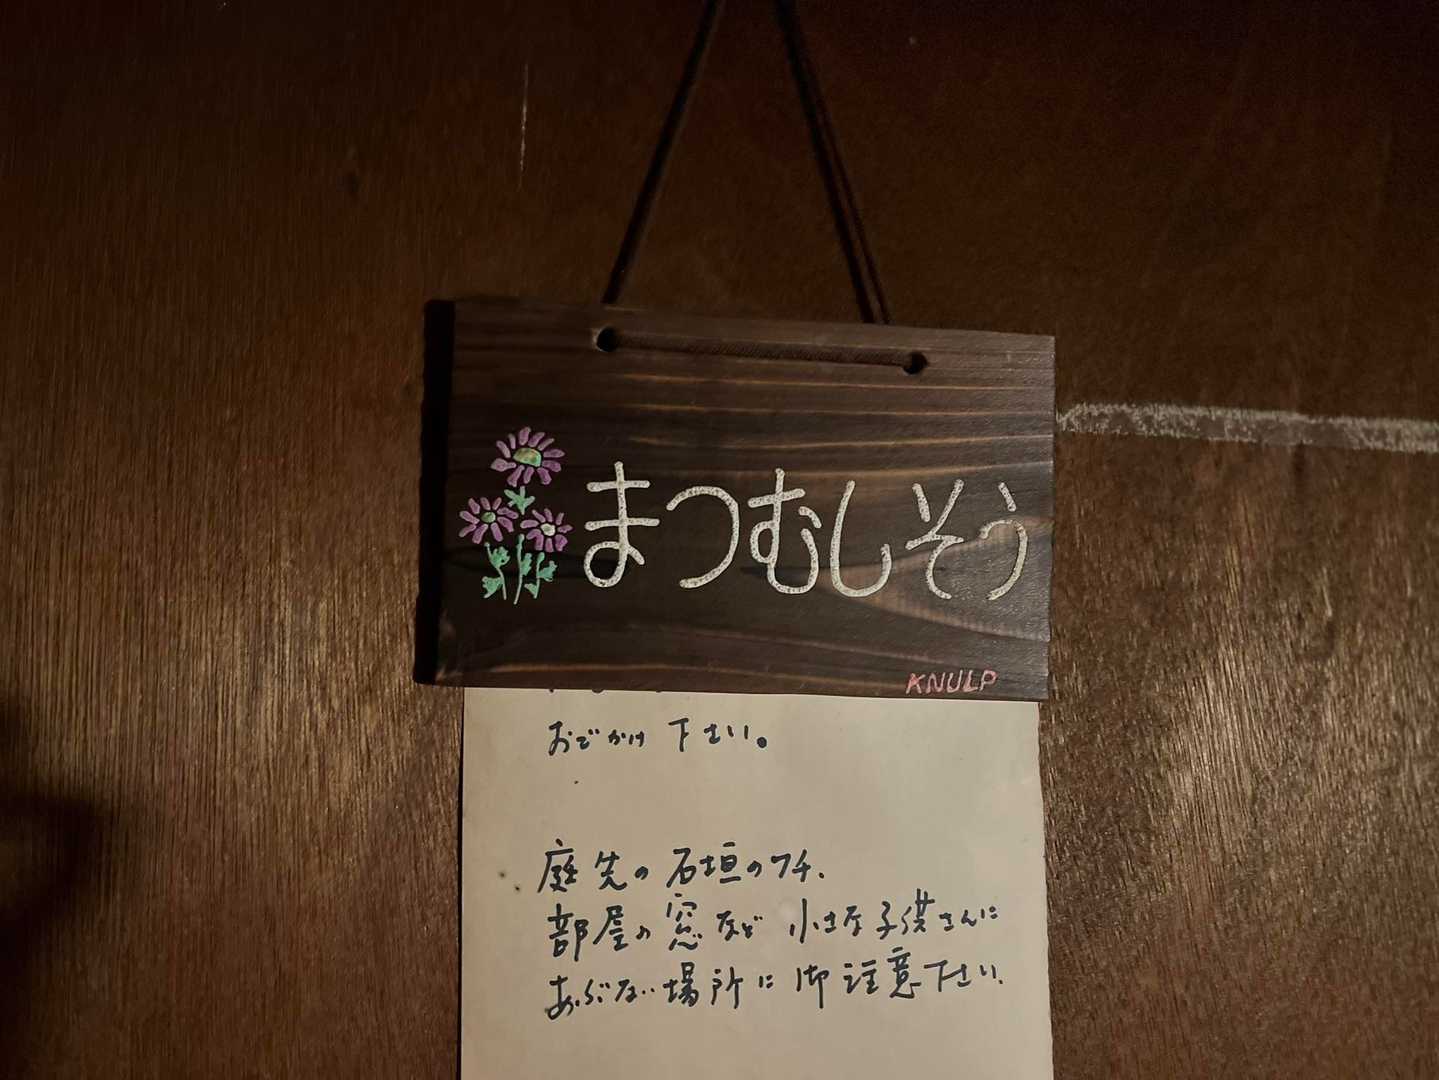 まつむしそう
KNULP
おでかけ下さい。
庭先の石垣のフチ、
部屋の窓など小さな子供さんに
あぶない場所に御注意下さい。